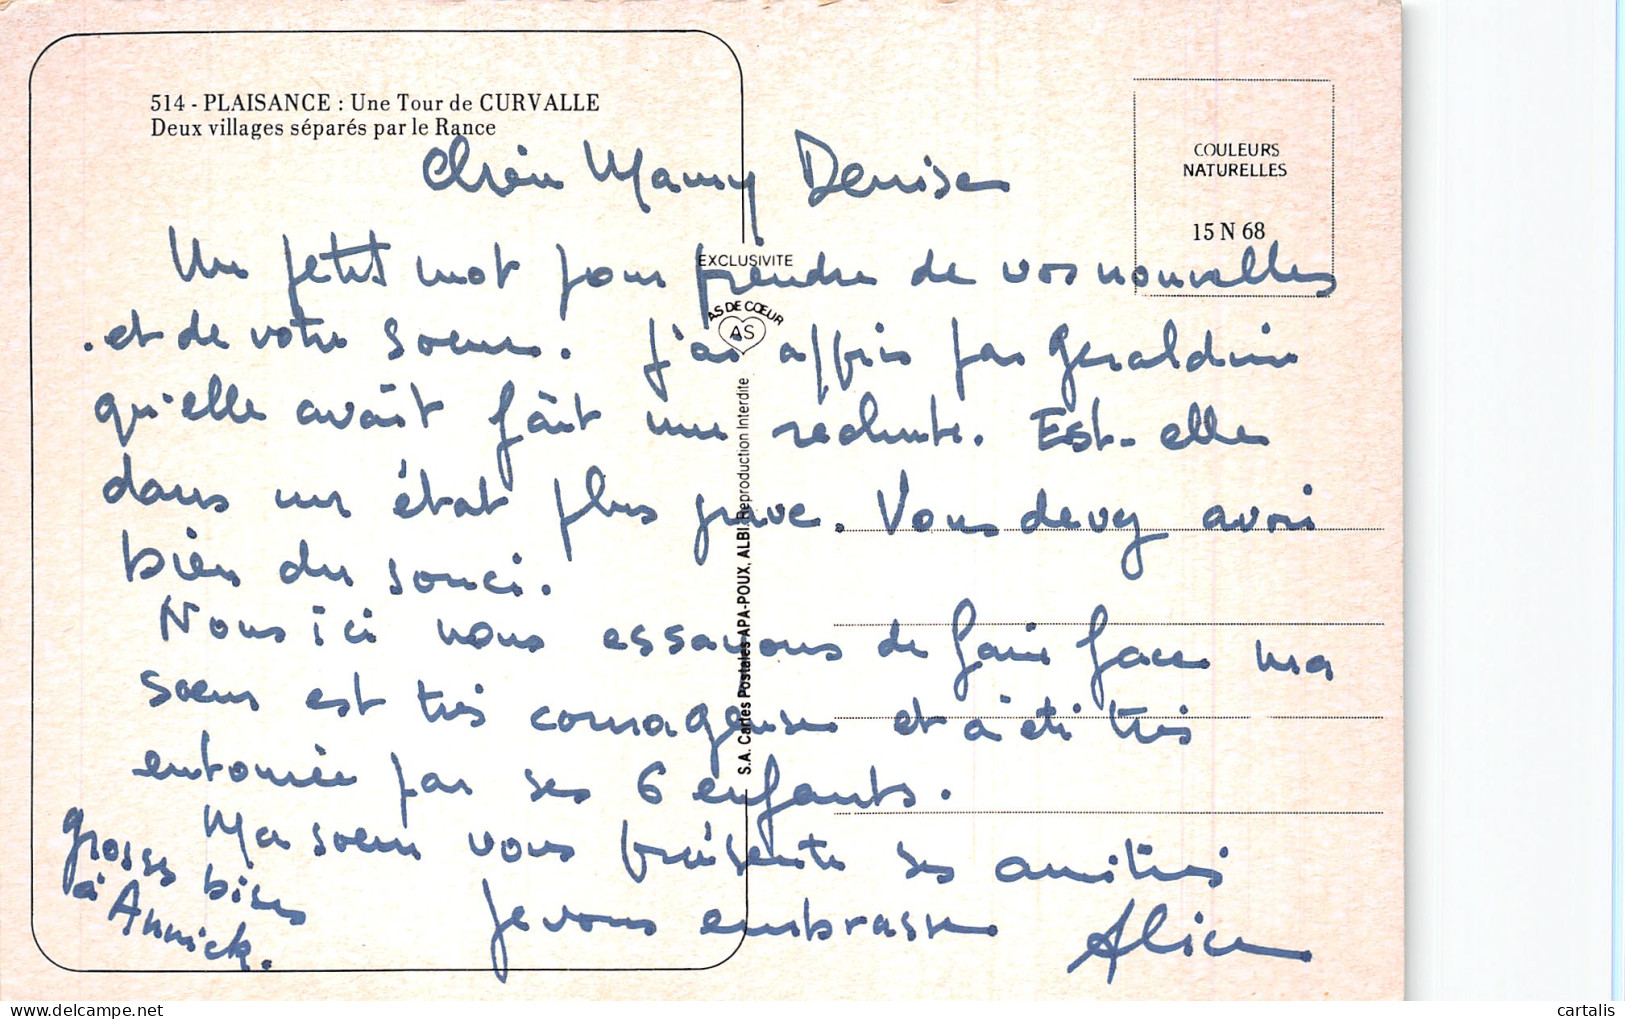 514 - PLAISANCE : Une Tour de CURVALLE
Deux villages séparés par le Rance
COULEURS
NATURELLES
15 N 68
EXCLUSIVITE
AS DE CŒUR
AS
S.A. Cartes Postales APA-POUX, ALBI. Reproduction Interdite
Chère Mamy Denise
Un petit mot pour prendre de vos nouvelles
et de votre soeur. J'ai appris par Geraldine
qu'elle avait fait une rechute. Est-elle
dans un état plus grave. Vous devez avoir
bien du souci.
Nous ici nous essayons de faire face ma
soeur est très courageuse et a été très
entourée par ses 6 enfants.
Ma soeur vous présente ses amitiés
Je vous embrasse Alice
grosses bises
à Annick.
cartalis